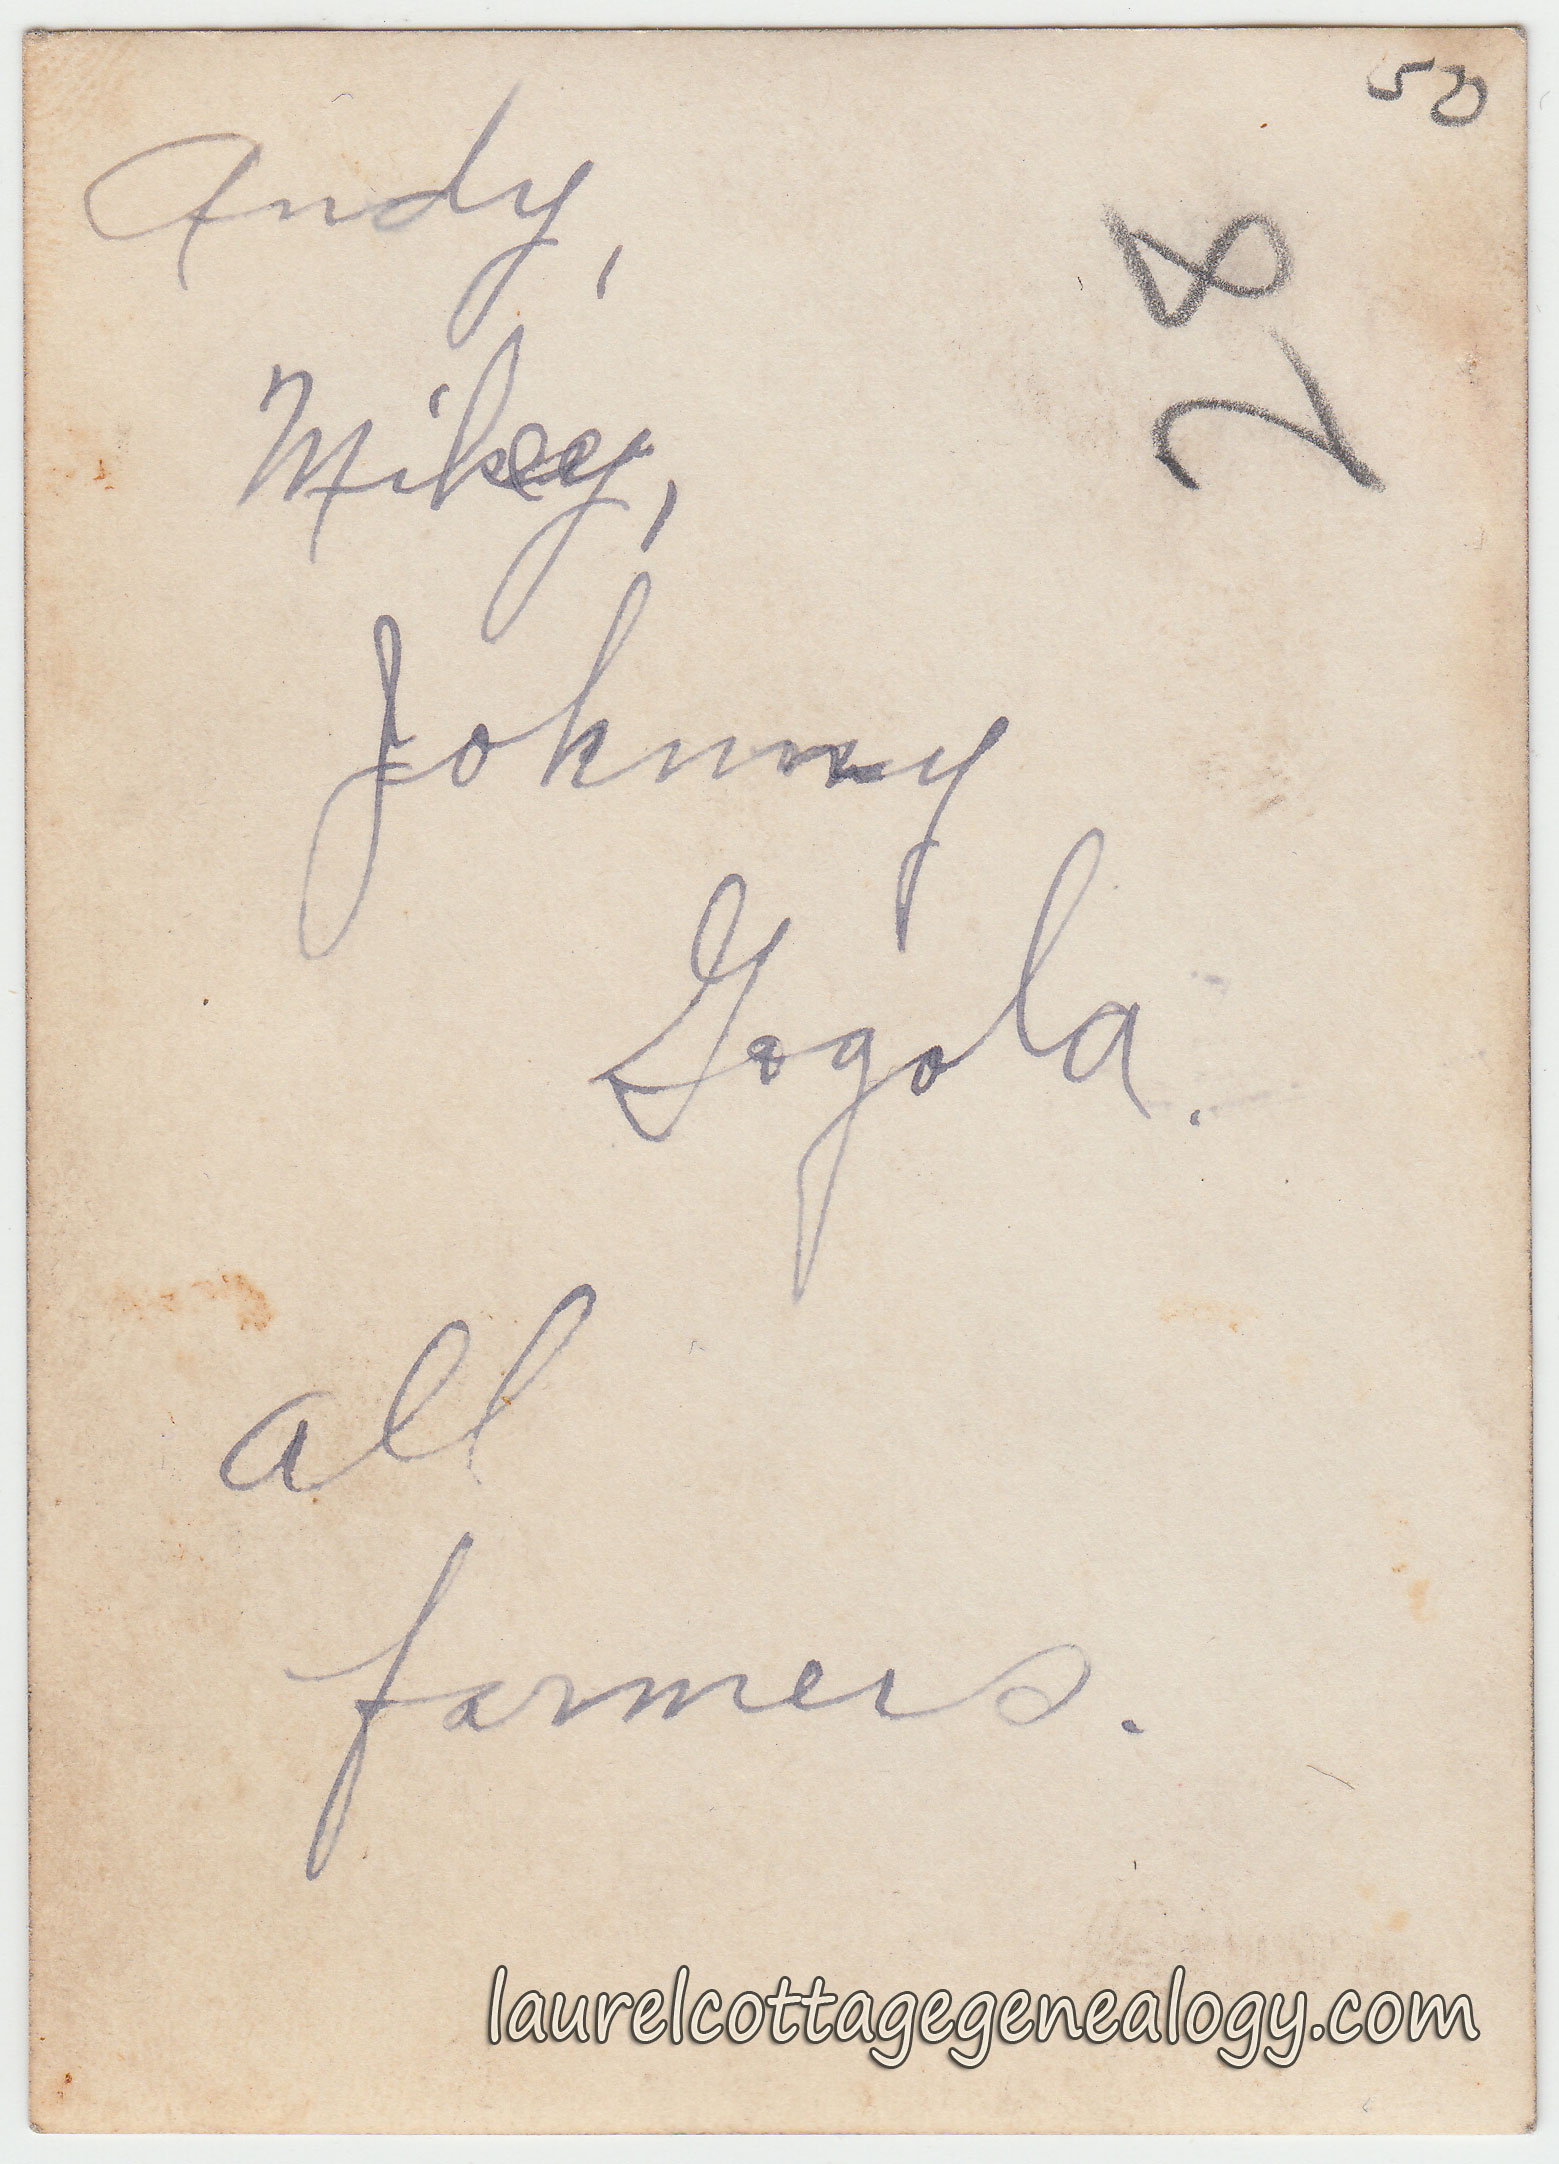 50
28
Andy,
Mikey,
Johnny
Gogola.
all
farmers.
laurelcottagegenealogy.com